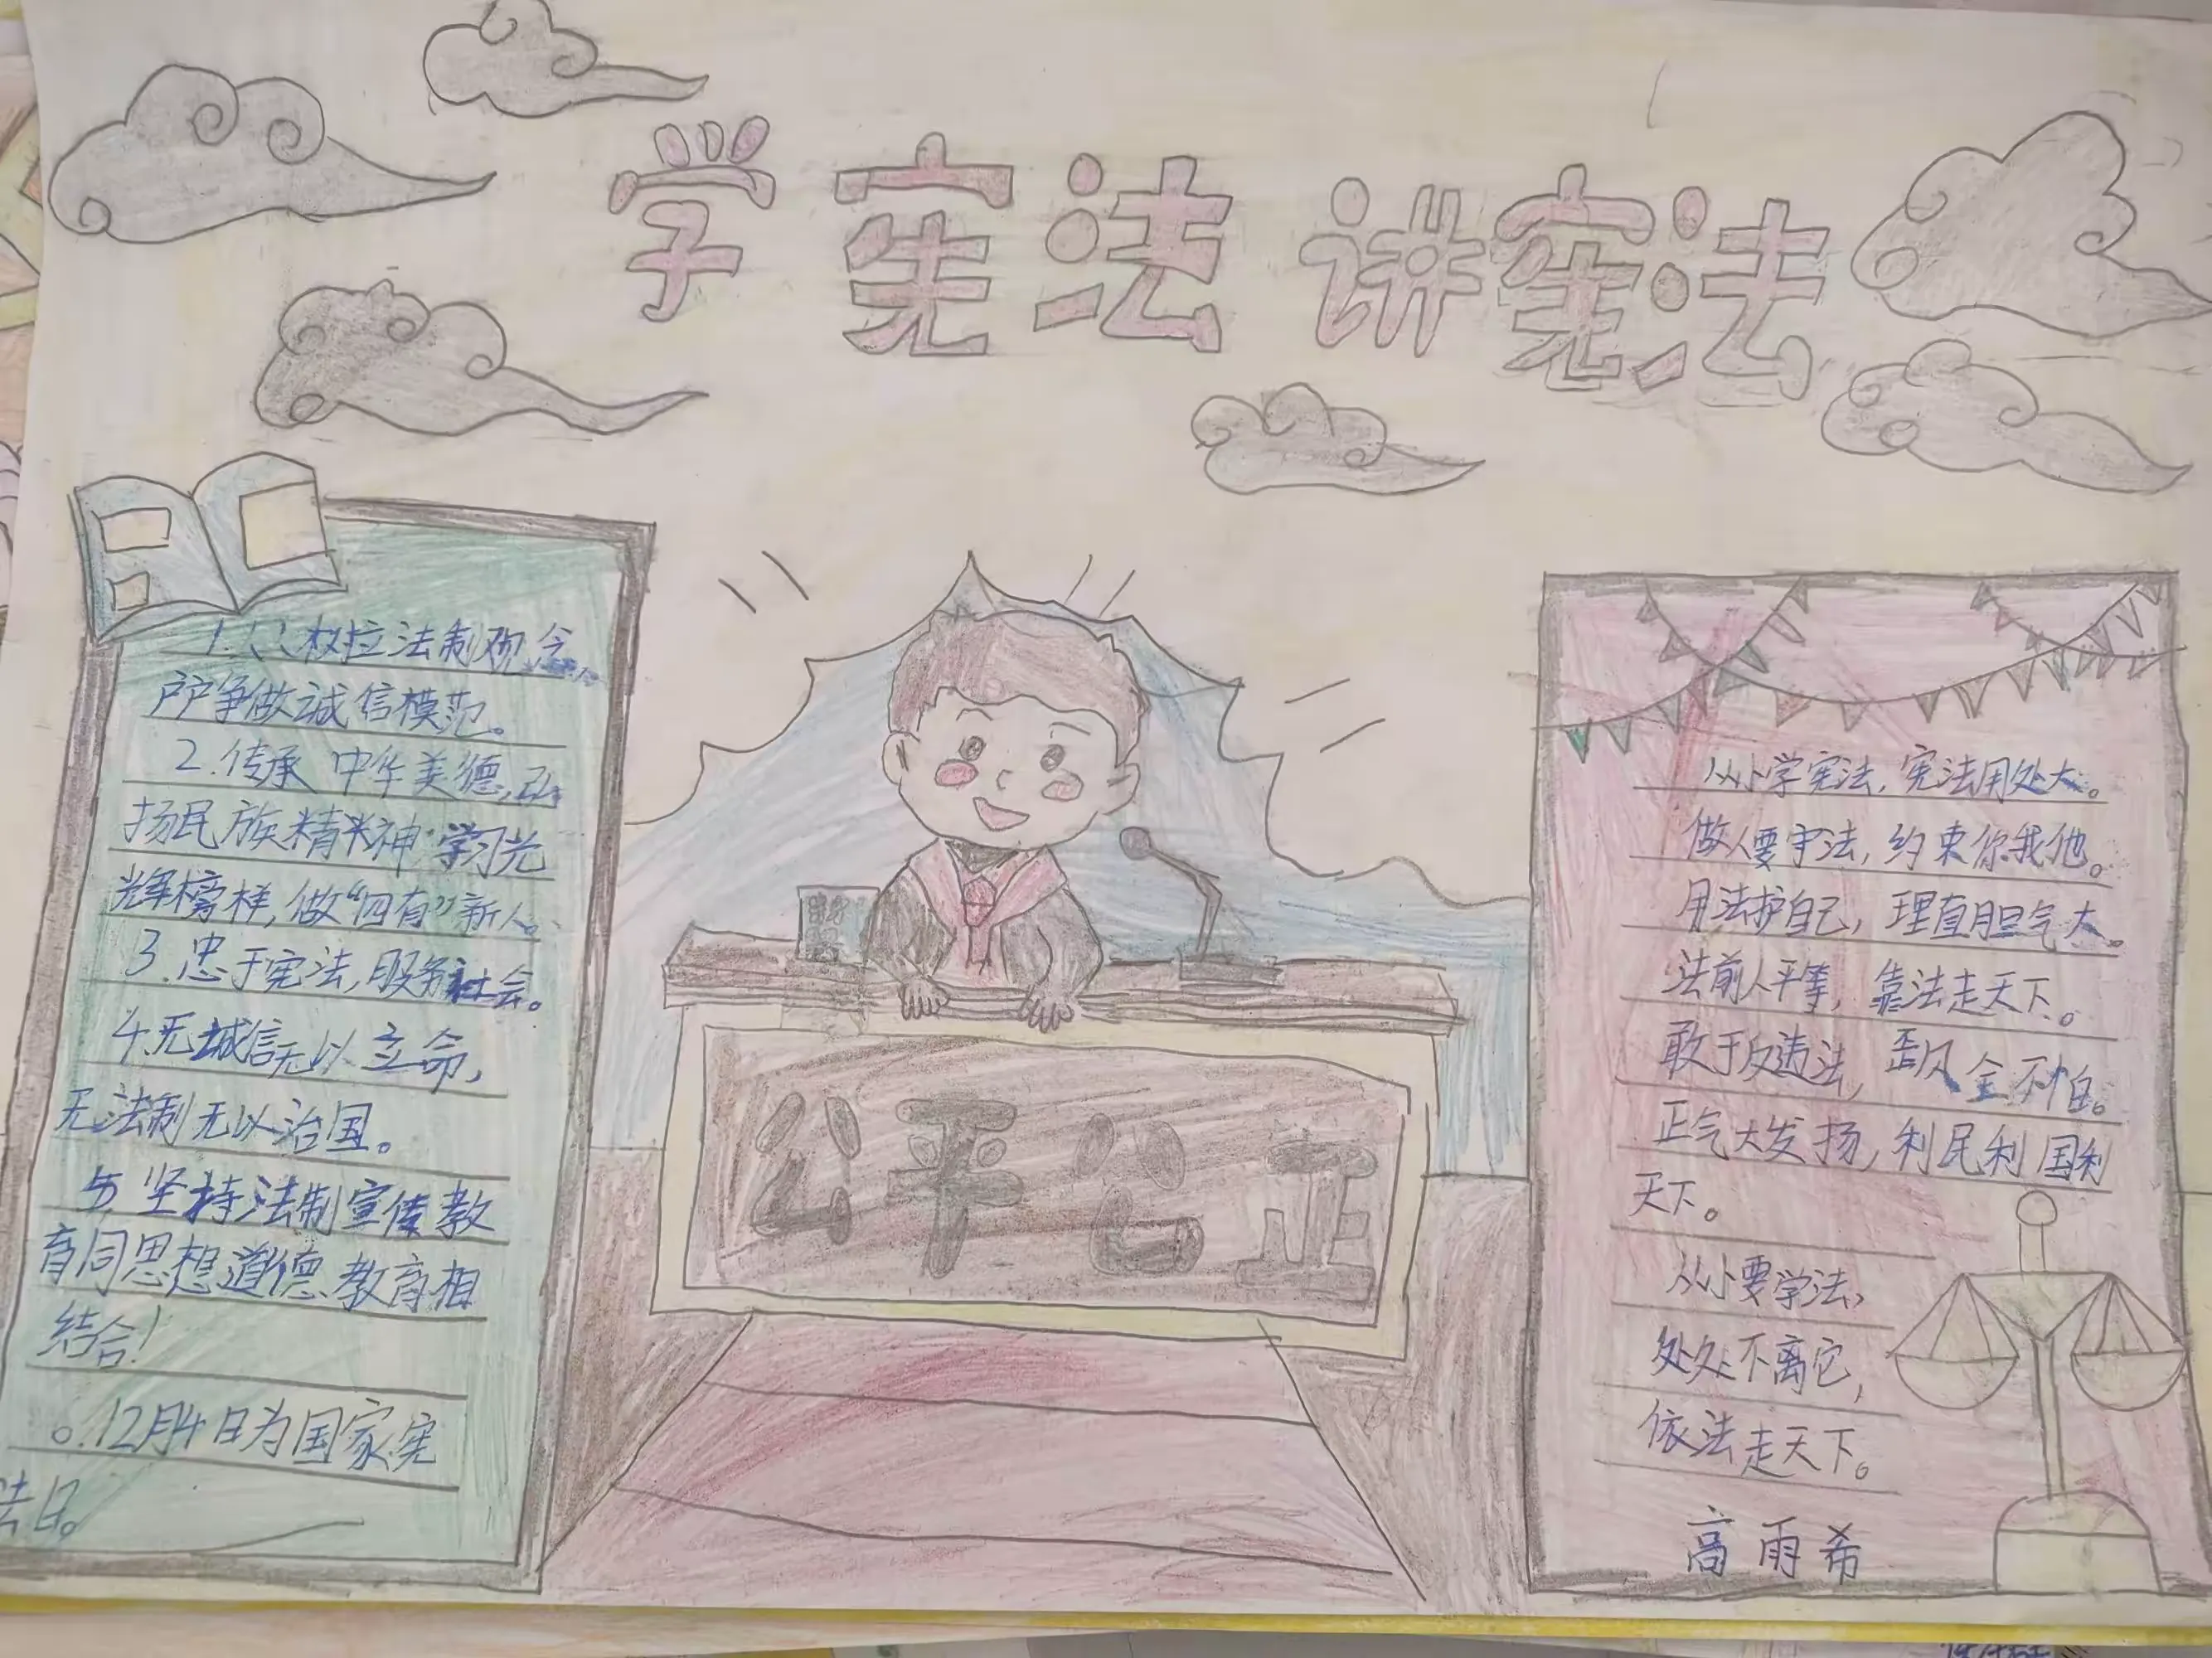 学宪法 讲宪法
1.人人权拉法制观念,
户户争做诚信模范。
2.传承中华美德,弘
扬民族精神,学习光
辉榜样,做“四有”新人。
3.忠于宪法,服务社会。
4.无诚信无以立命,
无法制无以治国。
5.坚持法制宣传教
育同思想道德教育相
结合!
。12月4日为国家宪
法日。
公平公正
从小学宪法,宪法用处大。
做人要守法,约束你我他。
用法护自己,理直胆气大。
法前人平等,靠法走天下。
敢于反违法,歪风全不怕。
正气大发扬,利民利国利
天下。
从小要学法,
处处不离它,
依法走天下。
高雨希